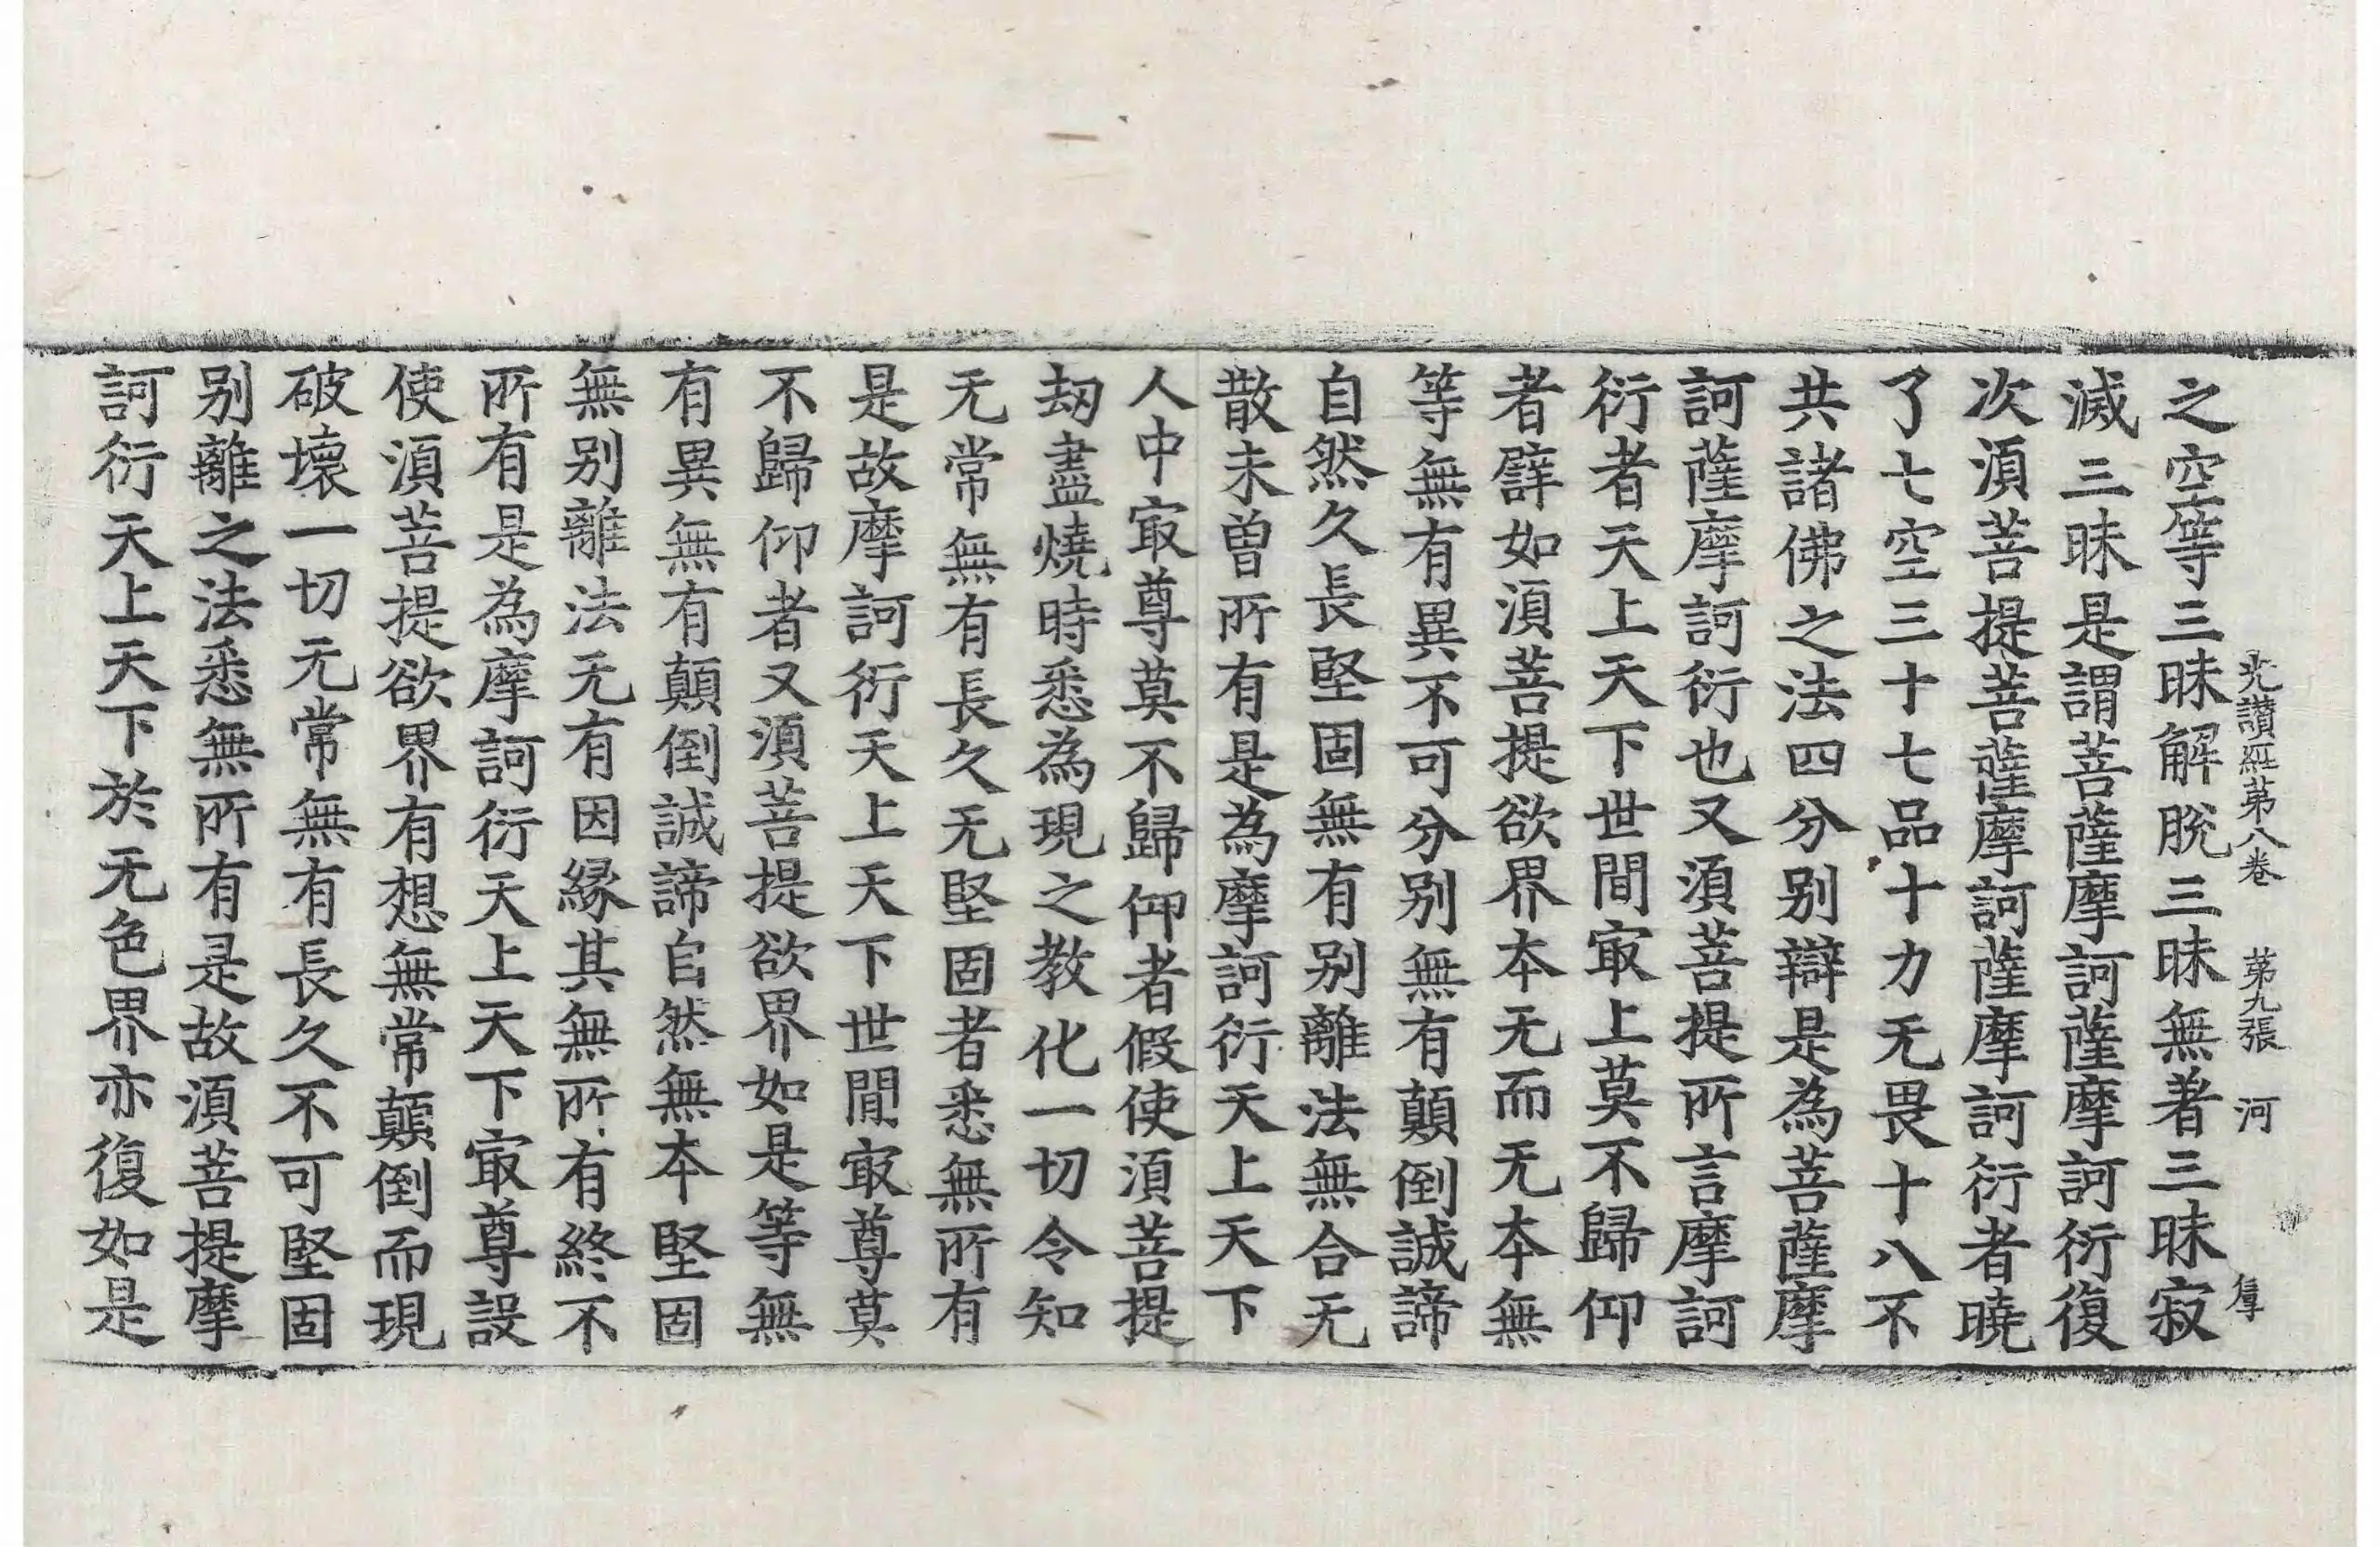 光讃經苐八卷 苐九張 河
之空等三昧解脫三昧無著三昧寂
滅三昧是謂菩薩摩訶薩摩訶衍復
次湏菩提菩薩摩訶薩摩訶衍者曉
了七空三十七品十力无畏十八不
共諸佛之法四分别辯是為菩薩摩
訶薩摩訶衍也又湏菩提所言摩訶
衍者天上天下世間㝡上莫不歸仰
者譬如湏菩提欲界本无而无本無
等無有異不可分别無有顛倒誠諦
自然久長堅固無有别離法無合无
散未曽所有是為摩訶衍天上天下
人中㝡尊莫不歸仰者假使湏菩提
劫盡燒時悉為現之教化一切令知
无常無有長久无堅固者悉無所有
是故摩訶衍天上天下世間㝡尊莫
不歸仰者又湏菩提欲界如是等無
有異無有顛倒誠諦自然無本堅固
無别離法无有因緣其無所有終不
所有是為摩訶衍天上天下㝡尊設
使湏菩提欲界有想無常顛倒而現
破壞一切无常無有長久不可堅固
别離之法悉無所有是故湏菩提摩
訶衍天上天下於无色界亦復如是